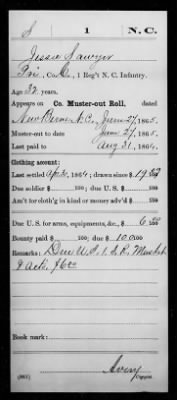 S | 1 | N.C.
Jessie Sawyer
Pri, Co. , 1 Reg't N. C. Infantry.
Age 32 years.
Appears on Co. Muster-out Roll, dated
New Berne N.C., June 27, 1865.
Muster-out to date June 27, 1865.
Last paid to Aug 31, 1864.
Clothing account:
Last settled Apr 30, 1864; drawn since $
Due soldier $ 100; due U. S. $ 100
Am't for cloth'g in kind or money adv'd $ 100
Due U. S. for arms, equipments, &c., $ 6 00
Bounty paid $ 100; due $ 100
Remarks: Due U. S. 1 S. R. Musket
& acts. $6 00
Book mark:
Avery
Copyist.